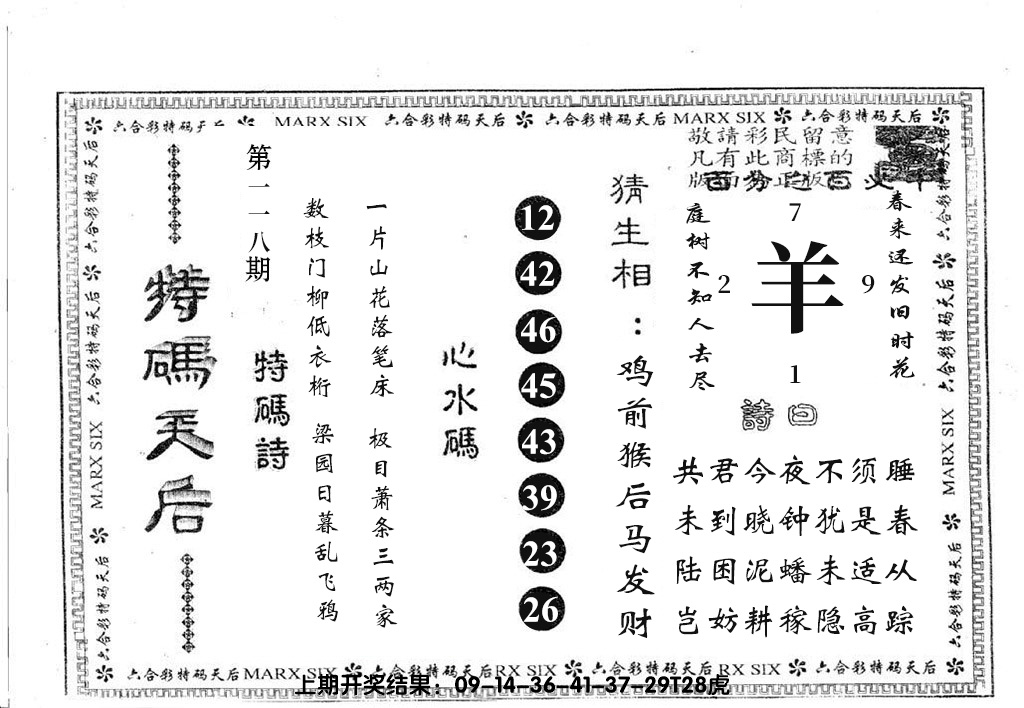 六合彩特码天后 MARX SIX 六合彩特码天后 六合彩特码天后 MARX SIX 六合彩特码天后
敬請彩民留意
凡有此商標的
版面为正版
春来还发旧时花
庭树不知人去尽
7
2 羊 9
1
詩曰
睡春从踪
须是适高
不犹未隐
夜钟蟠稼
今晓泥耕
君到困妨
共未陆岂
猜生相：鸡前猴后马发财
12
42
46
45
43
39
23
26
心水碼
一片山花落笔床 极目萧条三两家
数枝门柳低衣桁 梁园日暮乱飞鸦
特碼詩
第一一八期
特碼天后
六合彩特码天后 六合彩特码天后 MARX SIX 六合彩特码天后
六合彩特码天后 六合彩特码天后 MARX SIX 六合彩特码天后
六合彩特码天后 MARX SIX 六合彩特码天后 RX SIX 六合彩特码天后 RX SIX 六合彩特码天后
上期开奖结果：09-14-36-41-37-29T28虎